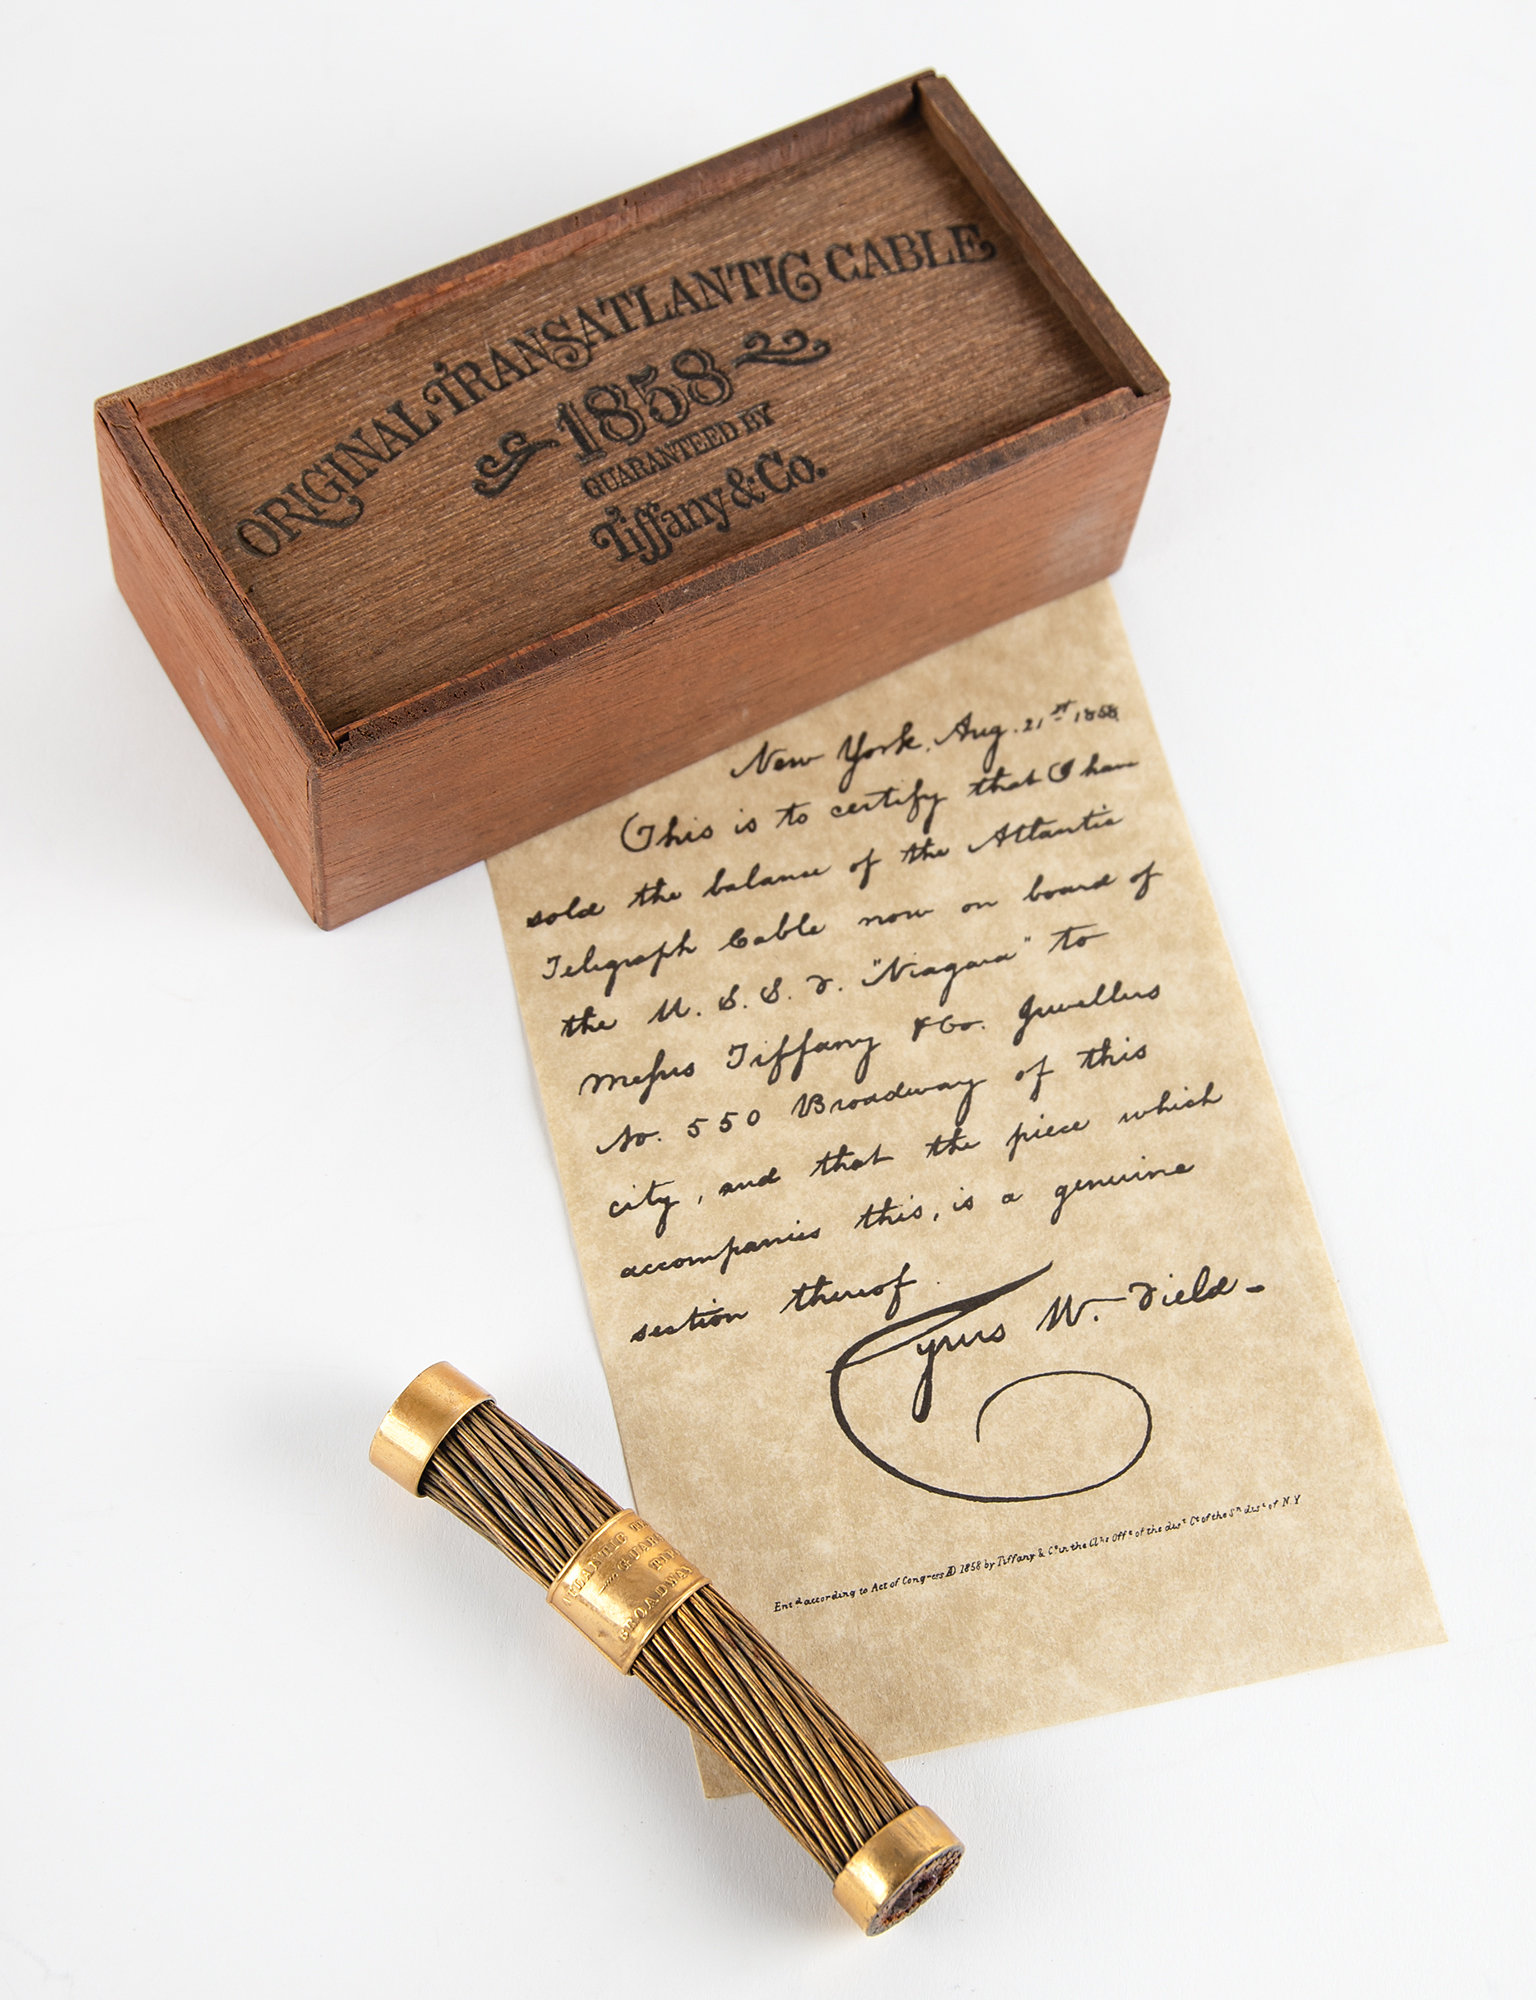 ORIGINAL TRANSATLANTIC CABLE
1858
GUARANTEED BY
Tiffany & Co.
New York, Aug. 21st 1858
This is to certify that I have
sold the balance of the Atlantic
Telegraph Cable now on board of
the U. S. S. F. "Niagara" to
Messrs Tiffany & Co. Jewellers
No. 550 Broadway of this
city, and that the piece which
accompanies this, is a genuine
section thereof.
Cyrus W. Field
Entd according to Act of Congress AD 1858 by Tiffany & Co in the Clks Offe of the dist Ct of the Sn dist of N.Y
BROADWAY